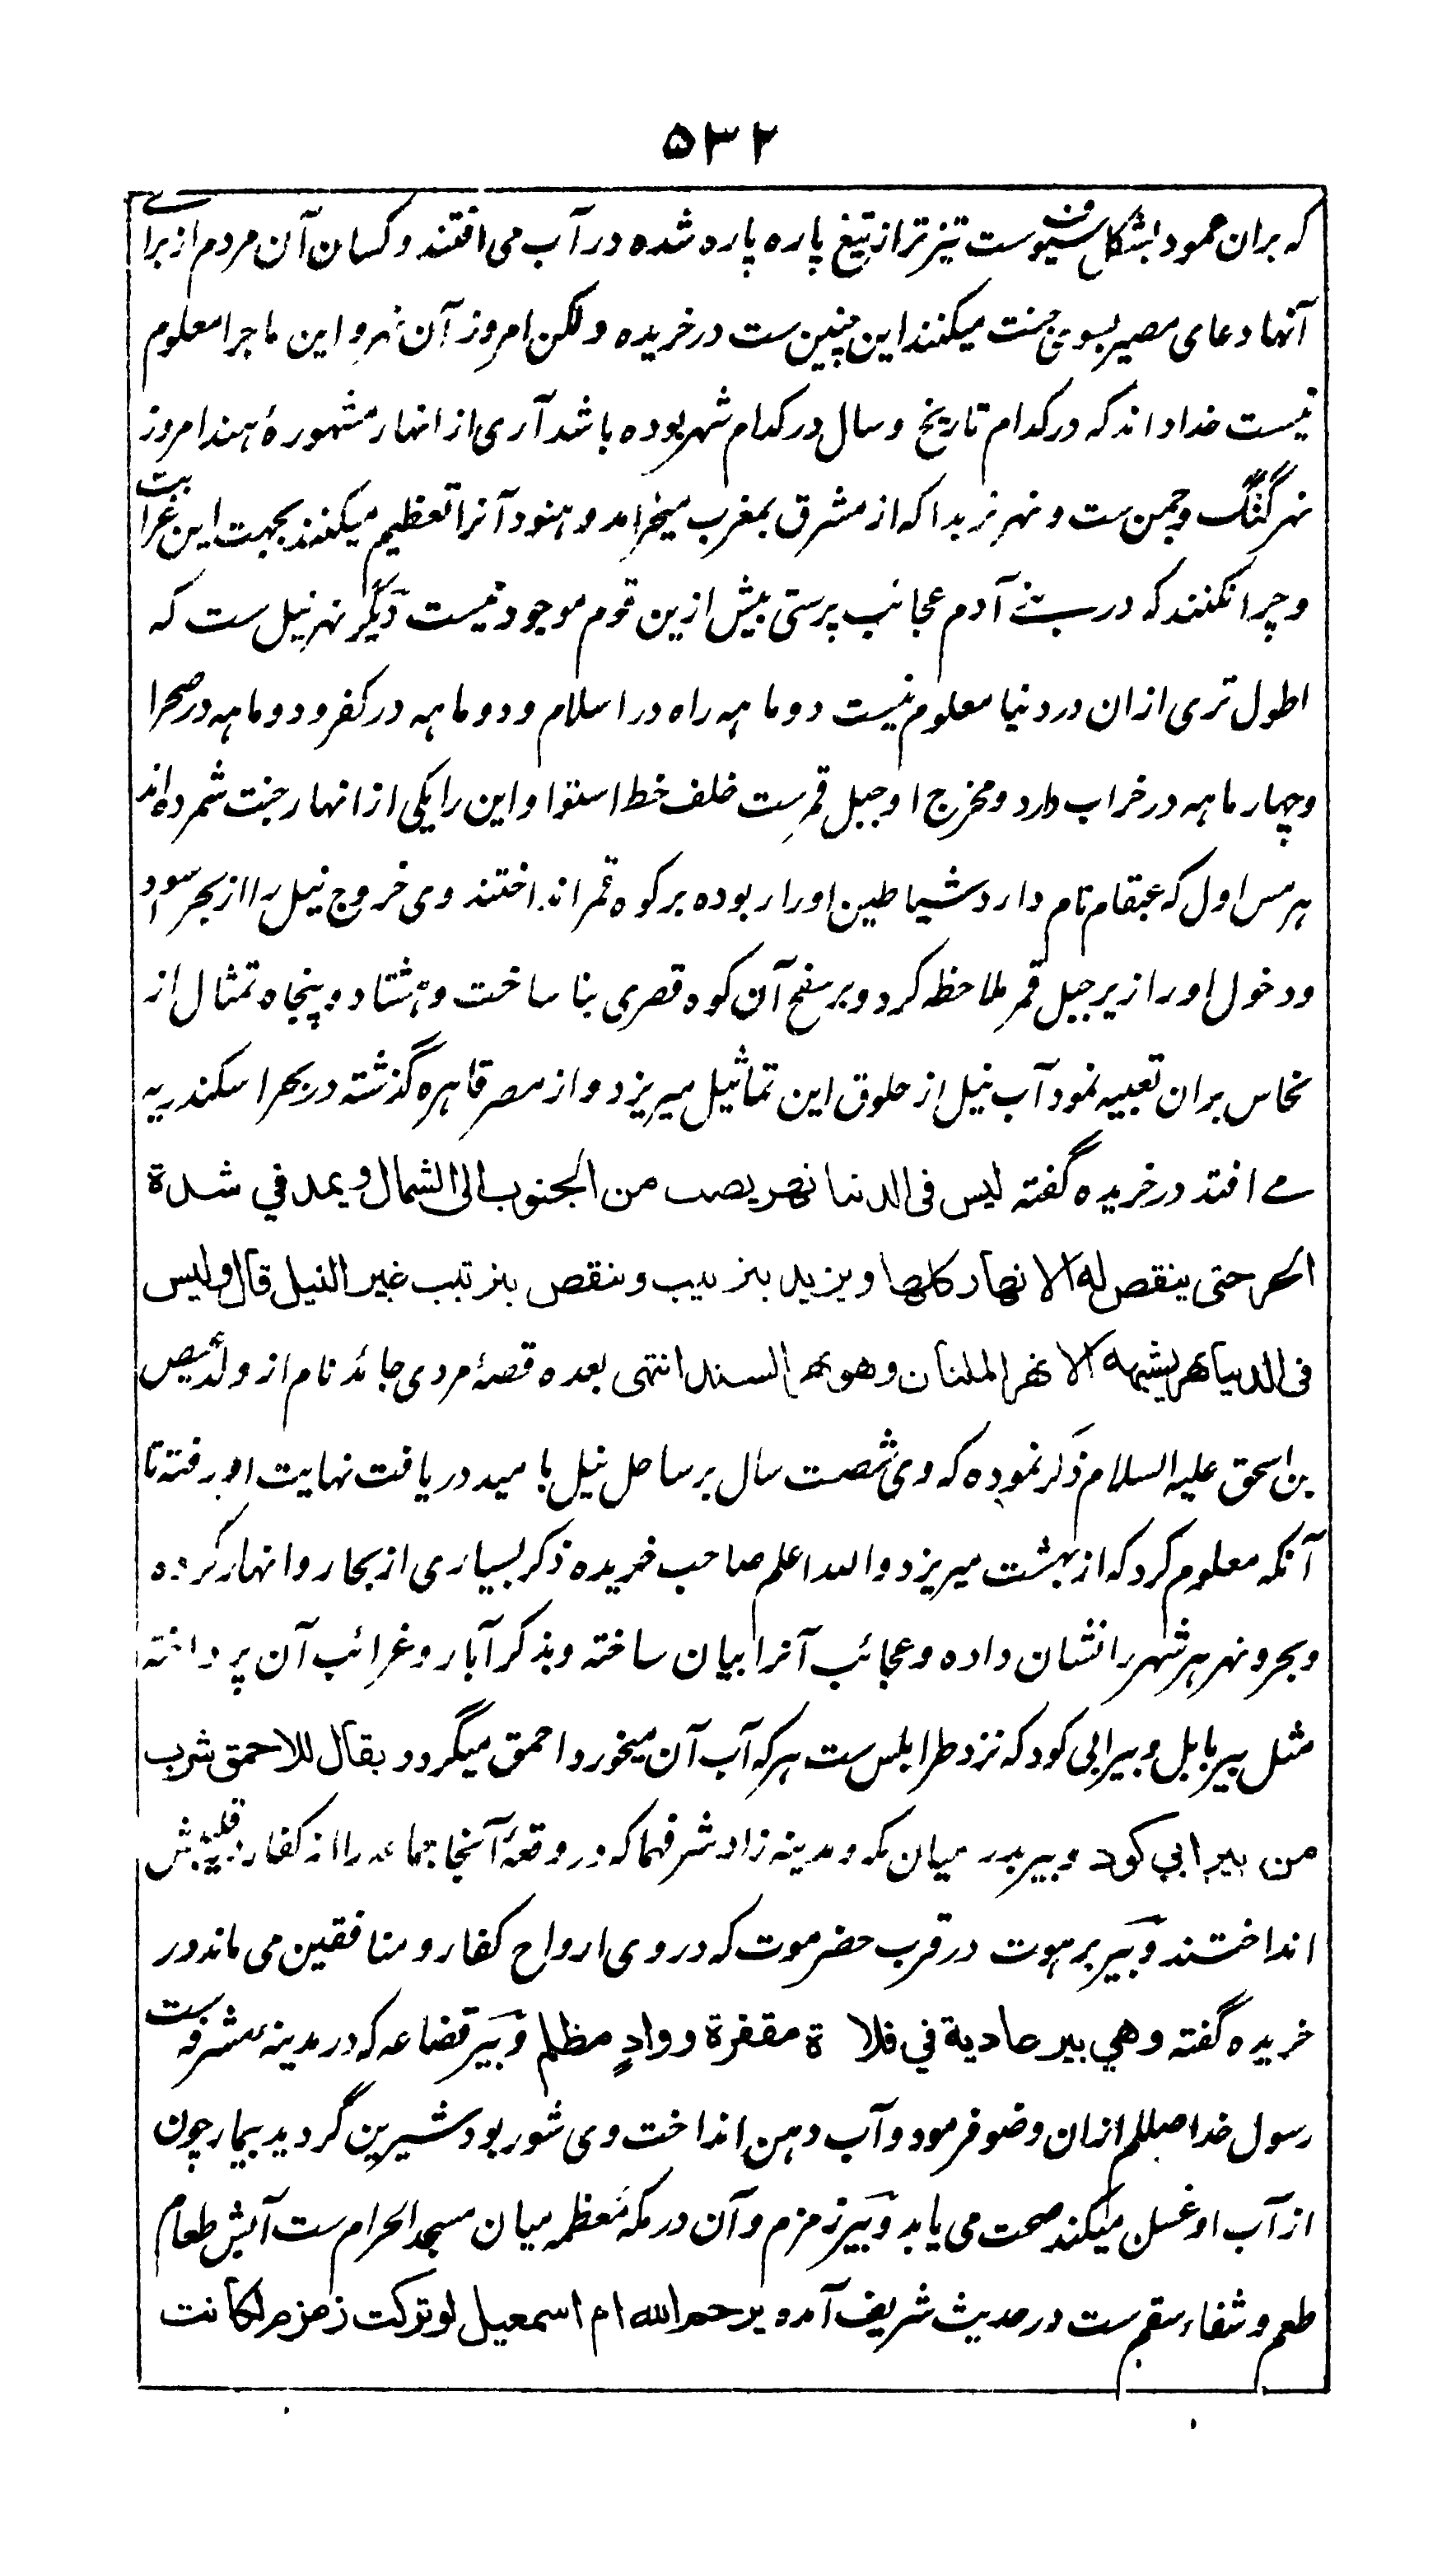 ۵۳۲
که بران عمود بشکل سیوف ست تیزتر از تیغ پاره پاره شده در آب می افتند و کسان آن مردم از براے
آنها دعای مصیر بسوی جنت میکنند این چنین ست در خریده ولکن امروز آن نهر و این ماجرا معلوم
نیست خدا داند که در کدام تاریخ و سال در کدام شهر بوده باشد آری از انهار مشهورۂ هند امروز
نهر گنگ و جمن ست و نهر نربدا که از مشرق بمغرب میخرامد و هنود آنرا تعظیم میکنند بجهت این غرابت
و چرا نکنند که در بنے آدم عجائب پرستی بیش ازین قوم موجود نیست دیگر نهر نیل ست که
اطول تری ازان در دنیا معلوم نیست دو ماهه راه در اسلام و دو ماهه در کفر و دو ماهه در صحرا
و چهار ماهه در خراب دارد و مخرج او جبل قمر ست خلف خط استوا و این را یکی از انهار جنت شمرده اند
هرمس اول که عبقام نام دارد شیاطین او را ربوده بر کوه قمر انداختند وی خروج نیل را از بحر اسود
و دخول او را زیر جبل قمر ملاحظه کرد و بر سفح آن کوه قصری بنا ساخت و هشتاد و پنجاه تمثال از
نحاس بران تعبیه نمود آب نیل از حلوق این تماثیل میریزد و از مصر قاهره گذشته در بحر اسکندریه
مے افتد در خریده گفته لیس فی الدنیا نهر یصب من الجنوب الی الشمال ویمد في شدة
الحر حتی ینقص له الانهار کلها ویزید بترتیب وینقص بترتیب غیر النیل قال ولیس
فی الدنیا نهر یشبهه الا نهر الملتان وهو نهر السند انتهی بعده قصۀ مردی جائد نام از ولد عیص
بن اسحق علیه السلام ذکر نموده که وی شصت سال بر ساحل نیل بامید دریافت نهایت او رفته تا
آنکه معلوم کرد که از بهشت میریزد والله اعلم صاحب خریده ذکر بسیاری از بحار و انهار کرده
و بحر و نهر هر شهر را نشان داده و عجائب آنرا بیان ساخته و بذکر آبار و غرائب آن پرداخته
مثل بیر بابل و بیر ابی کود که نزد طرابلس ست هر که آب آن میخورد احمق میگردد یقال للاحمق شرب
من بیر ابي کود و بیر بدر میان مکه و مدینه زاد شرفهما که در وقعۀ آنجا جماعه را از کفار در قلیبش
انداختند و بیر برهوت در قرب حضرموت که در وی ارواح کفار و منافقین می ماند در
خریده گفته وهي بیر عادیة في فلاة مقفرة ووادٍ مظلم و بیر قضاعه که در مدینۂ مشرفه ست
رسول خدا صللم ازان وضو فرمود و آب دهن انداخت وی شور بود شیرین گردید بیمار چون
از آب او غسل میکند صحت می یابد و بیر زمزم و آن در مکۂ معظمه میان مسجد الحرام ست آبش طعام
طعم و شفاء سقم ست در حدیث شریف آمده یرحم الله ام اسمعیل لو ترکت زمزم لکانت